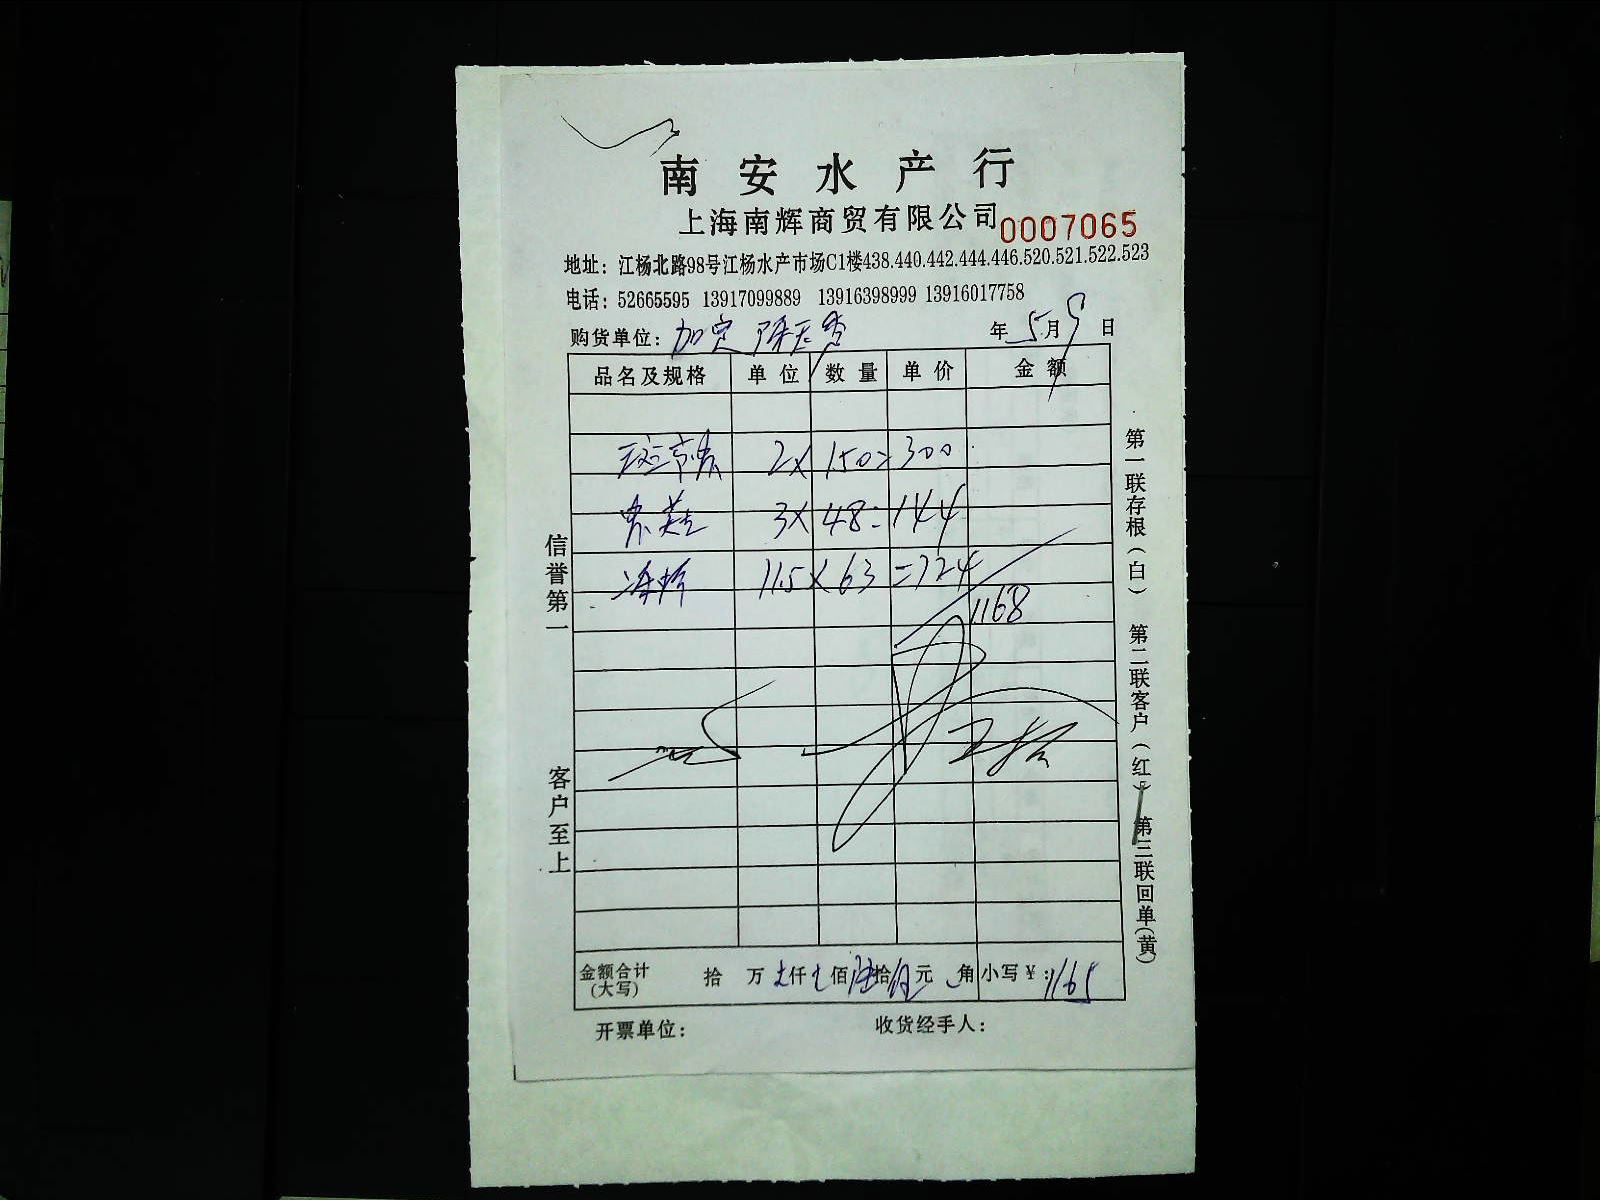 南安水产行
上海南辉商贸有限公司 0007065
地址：江杨北路98号江杨水产市场C1楼438.440.442.444.446.520.521.522.523
电话：52665595 13917099889 13916398999 13916017758
购货单位： 年5月9日
品名及规格 单位 数量 单价 金额
2×150=300
3×48=144
11.5×63=724
1168
金额合计(大写) 拾 万 仟 佰 拾 元 角 小写¥：1165
开票单位： 收货经手人：
信誉第一 客户至上
第一联存根（白） 第二联客户（红） 第三联回单（黄）